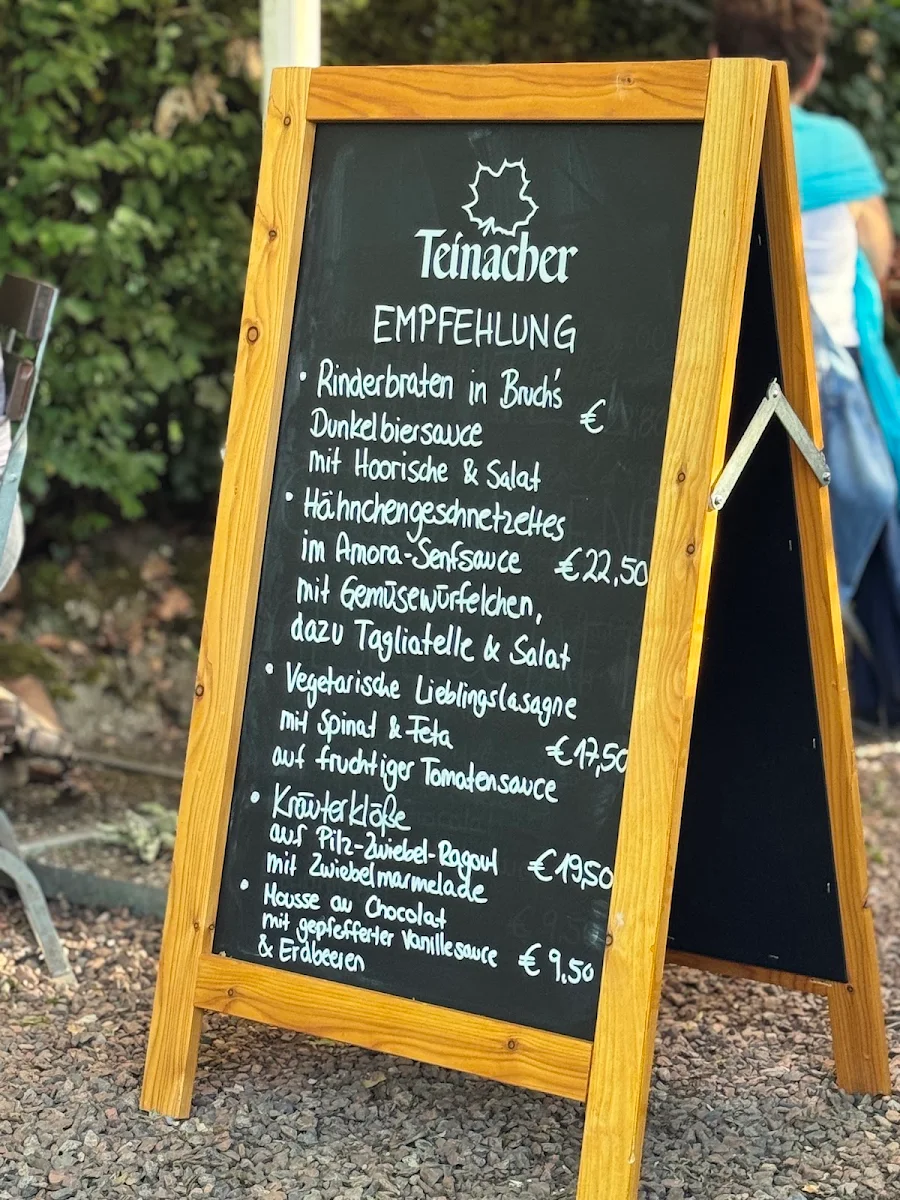 Teinacher
EMPFEHLUNG
• Rinderbraten in Bruch's
Dunkelbiersauce €
mit Hoorische & Salat
• Hähnchengeschnetzeltes
im Amora-Senfsauce €22,50
mit Gemüsewürfelchen,
dazu Tagliatelle & Salat
• Vegetarische Lieblingslasagne
mit Spinat & Feta €17,50
auf fruchtiger Tomatensauce
• Kräuterklöße
auf Pilz-Zwiebel-Ragout €19,50
mit Zwiebelmarmelade
• Mousse au Chocolat
mit gepfefferter Vanillesauce € 9,50
& Erdbeeren